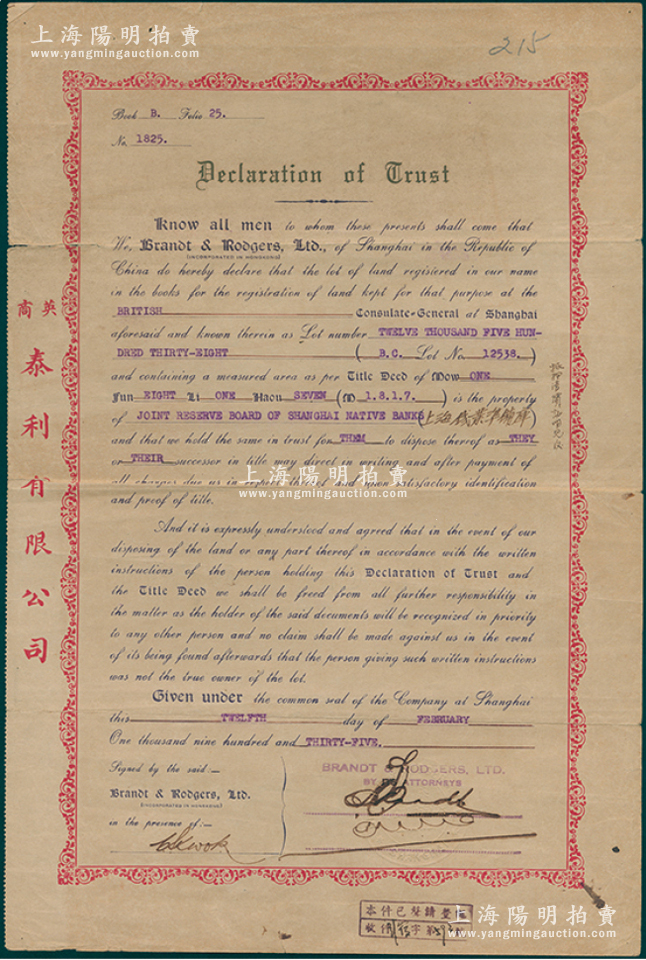 上海陽明拍賣
www.yangmingauction.com
215
Book B. Folio 25.
No. 1825.
Declaration of Trust
Know all men to whom these presents shall come that
We, Brandt & Rodgers, Ltd., of Shanghai in the Republic of
(INCORPORATED IN HONGKONG)
China do hereby declare that the lot of land registered in our name
in the books for the registration of land kept for that purpose at the
BRITISH Consulate-General at Shanghai
aforesaid and known therein as Lot number TWELVE THOUSAND FIVE HUN-
DRED THIRTY-EIGHT (B.C. Lot No. 12538.)
and containing a measured area as per Title Deed of Mow ONE
Fun EIGHT Li ONE Haou SEVEN (M 1.8.1.7.) is the property
of JOINT RESERVE BOARD OF SHANGHAI NATIVE BANKS (上海錢業準備庫)
and that we hold the same in trust for THEM to dispose thereof as THEY
or THEIR successor in title may direct in writing and after payment of
all charges due us in respect thereof and upon satisfactory identification
and proof of title.
上海陽明拍賣
www.yangmingauction.com
And it is expressly understood and agreed that in the event of our
disposing of the land or any part thereof in accordance with the written
instructions of the person holding this Declaration of Trust and
the Title Deed we shall be freed from all further responsibility in
the matter as the holder of the said documents will be recognized in priority
to any other person and no claim shall be made against us in the event
of its being found afterwards that the person giving such written instructions
was not the true owner of the lot.
Given under the common seal of the Company at Shanghai
this TWELFTH day of FEBRUARY
One thousand nine hundred and THIRTY-FIVE.
Signed by the said:—
Brandt & Rodgers, Ltd.
(INCORPORATED IN HONGKONG)
in the presence of:—
BRANDT & RODGERS, LTD.
BY ITS ATTORNEYS
英商
泰利有限公司
本件已聲請登
收件 字第
上海陽明拍賣
www.yangmingauction.com